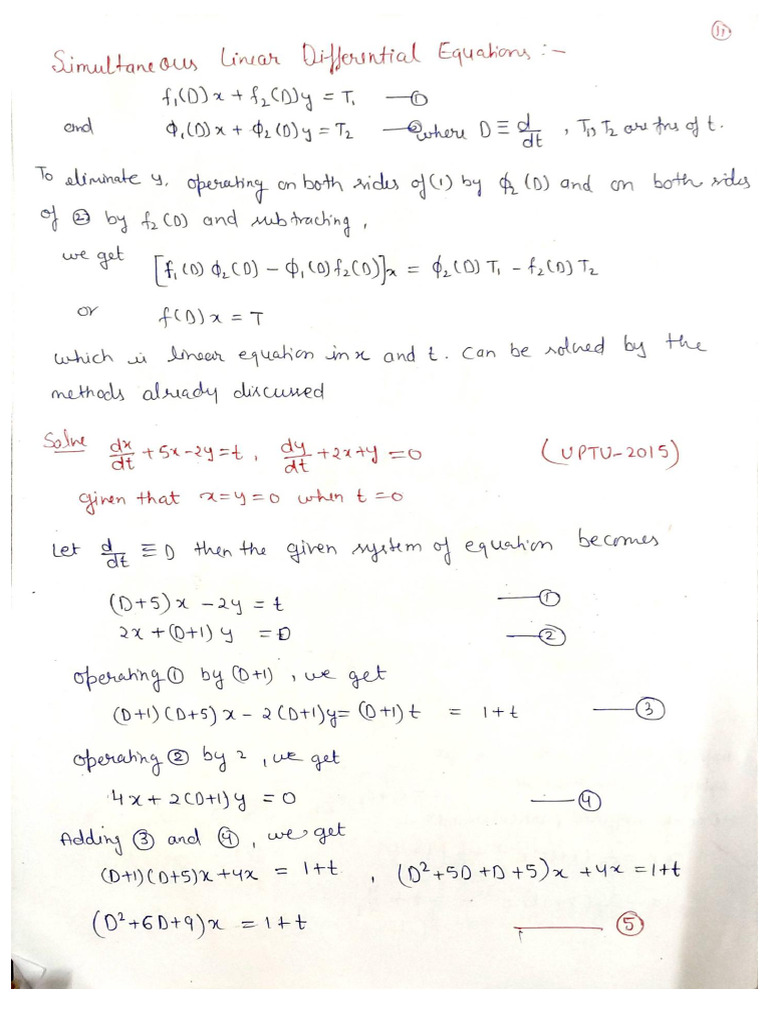 11
Simultaneous Linear Differential Equations :-
f₁(D)x + f₂(D)y = T₁ —①
and ϕ₁(D)x + ϕ₂(D)y = T₂ —② where D ≡ d/dt , T₁, T₂ are fns of t.
To eliminate y, operating on both sides of (1) by ϕ₂(D) and on both sides
of ② by f₂(D) and subtracting,
we get [f₁(D) ϕ₂(D) - ϕ₁(D) f₂(D)]x = ϕ₂(D) T₁ - f₂(D) T₂
or f(D)x = T
which is linear equation in x and t. Can be solved by the
methods already discussed
Solve dx/dt + 5x - 2y = t, dy/dt + 2x + y = 0 (UPTU-2015)
given that x = y = 0 when t = 0
Let d/dt ≡ D then the given system of equation becomes
(D+5)x - 2y = t —①
2x + (D+1)y = 0 —②
operating ① by (D+1), we get
(D+1)(D+5)x - 2(D+1)y = (D+1)t = 1+t —③
operating ② by 2, we get
4x + 2(D+1)y = 0 —④
Adding ③ and ④, we get
(D+1)(D+5)x + 4x = 1+t , (D²+5D+D+5)x + 4x = 1+t
(D²+6D+9)x = 1+t —⑤